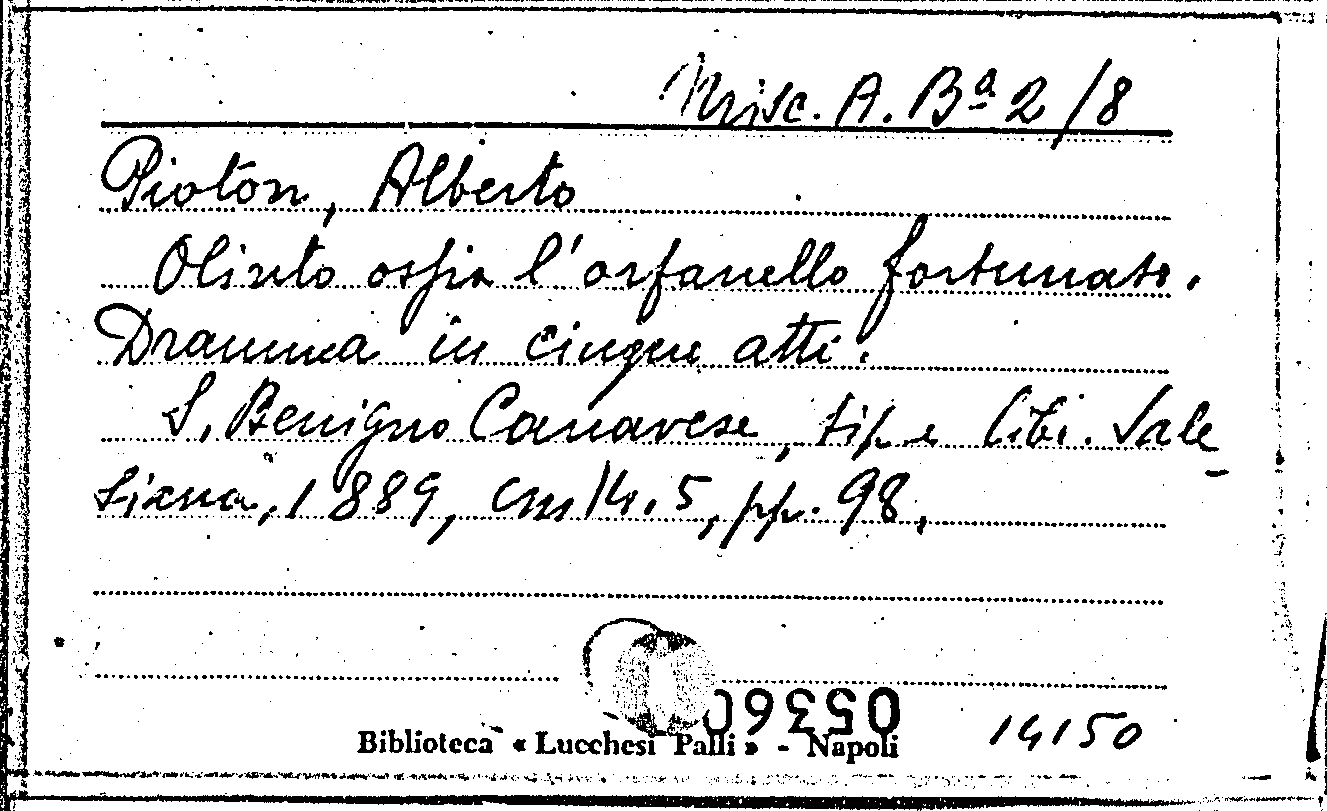 Misc. A. Bª 2/8
Pioton, Alberto
Olinto ossia l'orfanello fortunato.
Dramma in cinque atti.
S. Benigno Canavese, tip. e libr. Sale-
siana, 1889, cm 14.5, pp. 98.
05360
Biblioteca « Lucchesi Palli » - Napoli
14150